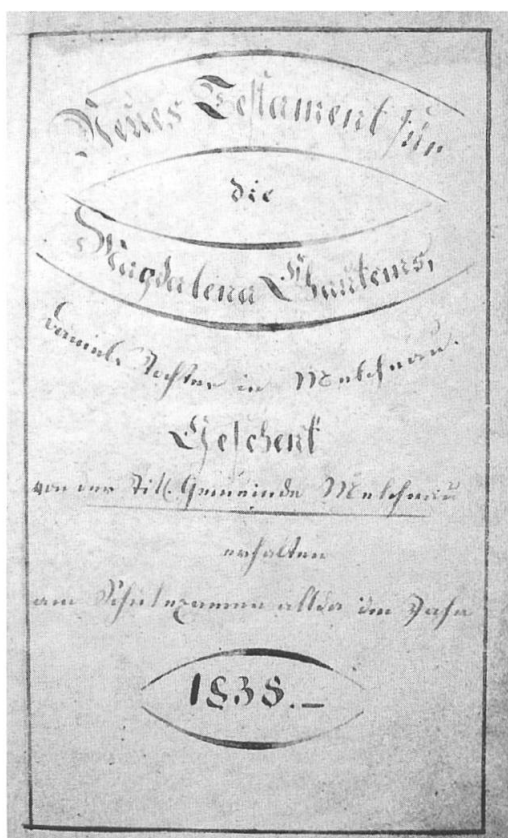 Neues Testament für
die
Magdalena Gantens,
Daniels Tochter in Melchnau.
Geschenk
von der Titl. Gemeinde Melchnau
erhalten
am Schulexamen allda im Jahr
1838.–